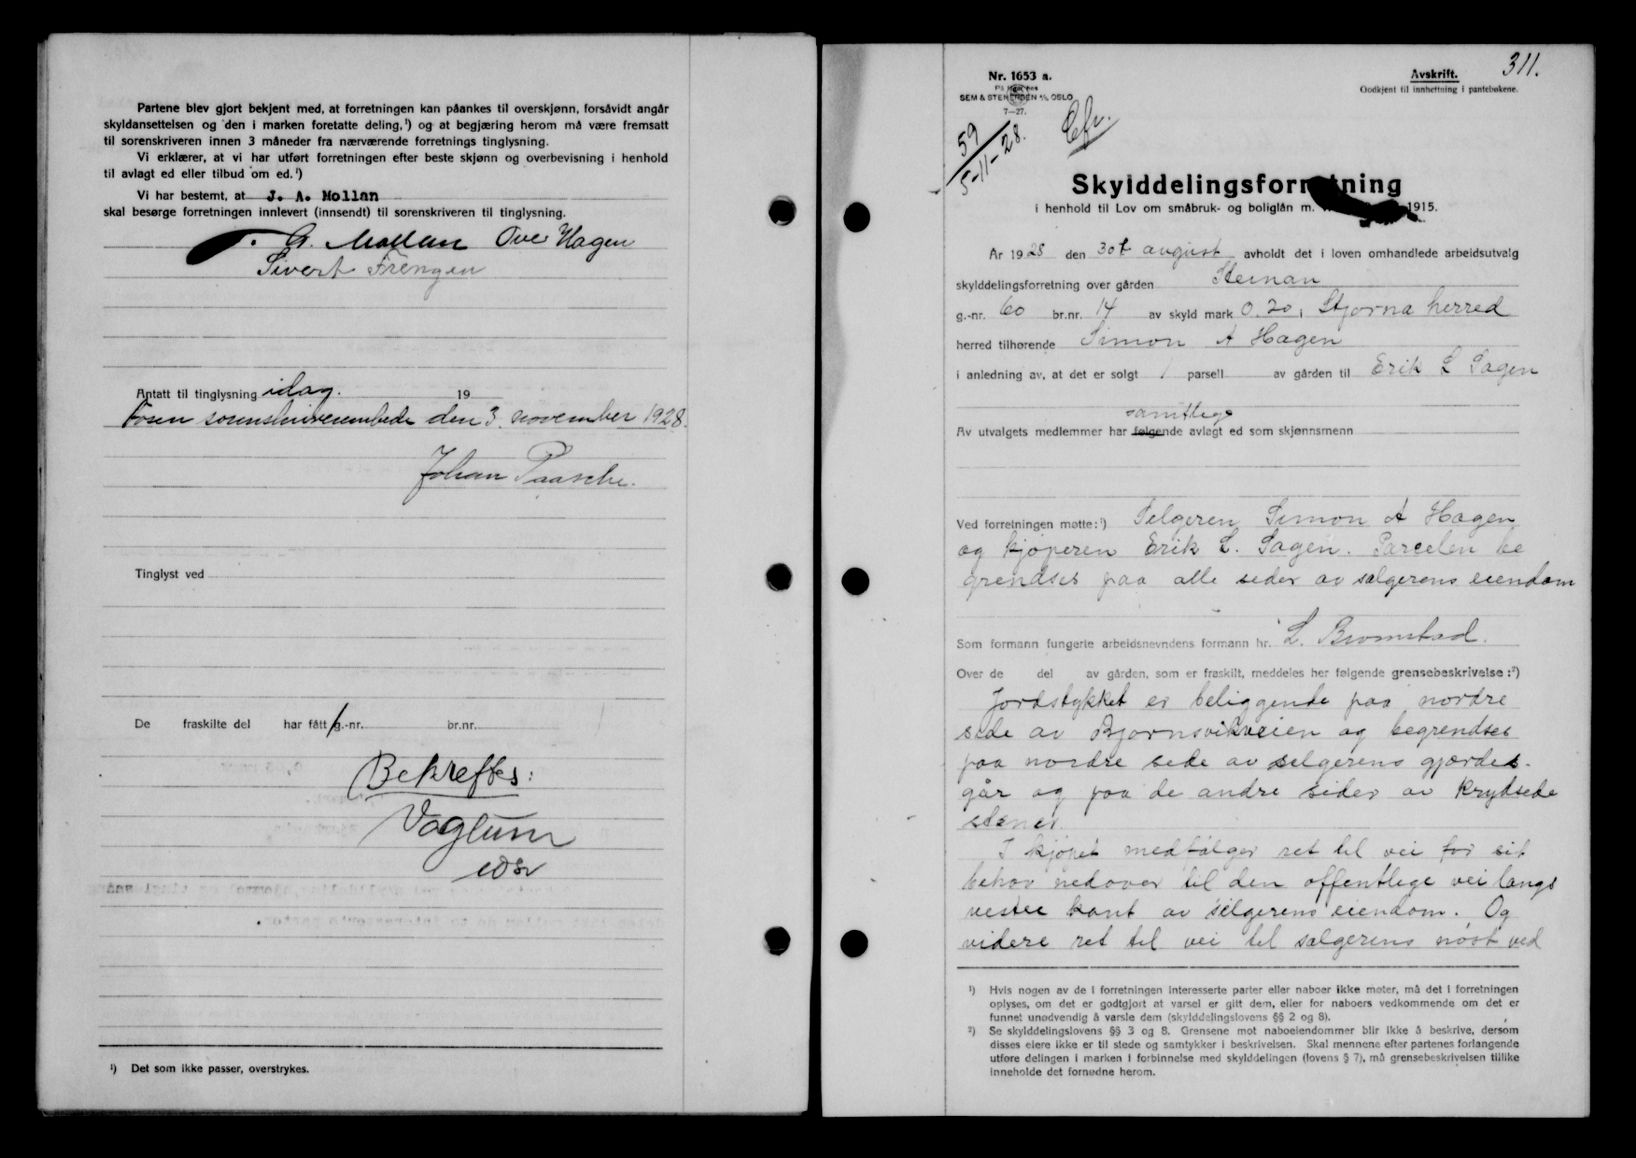 Partene blev gjort bekjent med, at forretningen kan påankes til overskjønn, forsåvidt angår
skyldansettelsen og den i marken foretatte deling,¹) og at begjæring herom må være fremsatt
til sorenskriveren innen 3 måneder fra nærværende forretnings tinglysning.
Vi erklærer, at vi har utført forretningen efter beste skjønn og overbevisning i henhold
til avlagt ed eller tilbud om ed.¹)
Vi har bestemt, at J. A. Mollan
skal besørge forretningen innlevert (innsendt) til sorenskriveren til tinglysning.
A. Mollan Ove Hagen
Sivert Frengen
Antatt til tinglysning idag. 19
Fosen sorenskriverembede den 3. november 1928.
Johan Paasche.
Tinglyst ved
De fraskilte del har fått g.-nr. br.nr.
Bekreftes:
Voglum
edsv
¹) Det som ikke passer, overstrykes.
311.
Nr. 1653 a.
SEM & STENERSEN A/S OSLO
7—27.
Avskrift.
Godkjent til innheftning i pantebøkene.
59
5-11-28.
Skylddelingsforretning
i henhold til Lov om småbruk- og boliglån m. 1915.
År 1928 den 30t august avholdt det i loven omhandlede arbeidsutvalg
skylddelingsforretning over gården Steinan
g.-nr. 60 br.nr. 14 av skyld mark 0.20, i Stjørna herred
herred tilhørende Simon A Hagen
i anledning av, at det er solgt 1 parsell av gården til Erik L Sagen
samtlege
Av utvalgets medlemmer har følgende avlagt ed som skjønnsmenn
Ved forretningen møtte:¹) Selgeren Simon A Hagen
og kjøperen Erik L. Sagen. Parcelen be
grendses paa alle sider av sælgerens eiendom
Som formann fungerte arbeidsnevndens formann hr. L. Bromstad.
Over de del av gården, som er fraskilt, meddeles her følgende grensebeskrivelse:²)
Jordstykket er beliggende paa nordre
side av Bjørnsvikveien og begrendses
paa nordre side av selgerens gjærdes-
går og paa de andre sider av krydsede
stener.
I kjøpet medfølger ret til vei for sit
behov nedover til den offentlege vei langs
vestre kant av selgerens eiendom. Og
videre ret til vei til sælgerens nøst ved
¹) Hvis nogen av de i forretningen interesserte parter eller naboer ikke møter, må det i forretningen
oplyses, om det er godtgjort at varsel er gitt dem, eller for naboers vedkommende om det er
funnet unødvendig å varsle dem (skylddelingslovens §§ 2 og 8).
²) Se skylddelingslovens §§ 3 og 8. Grensene mot naboeiendommer blir ikke å beskrive, dersom
disses eiere ikke er til stede og samtykker i beskrivelsen. Skal mennene efter partenes forlangende
utføre delingen i marken i forbinnelse med skylddelingen (lovens § 7), må grensebeskrivelsen tillike
inneholde det fornødne herom.